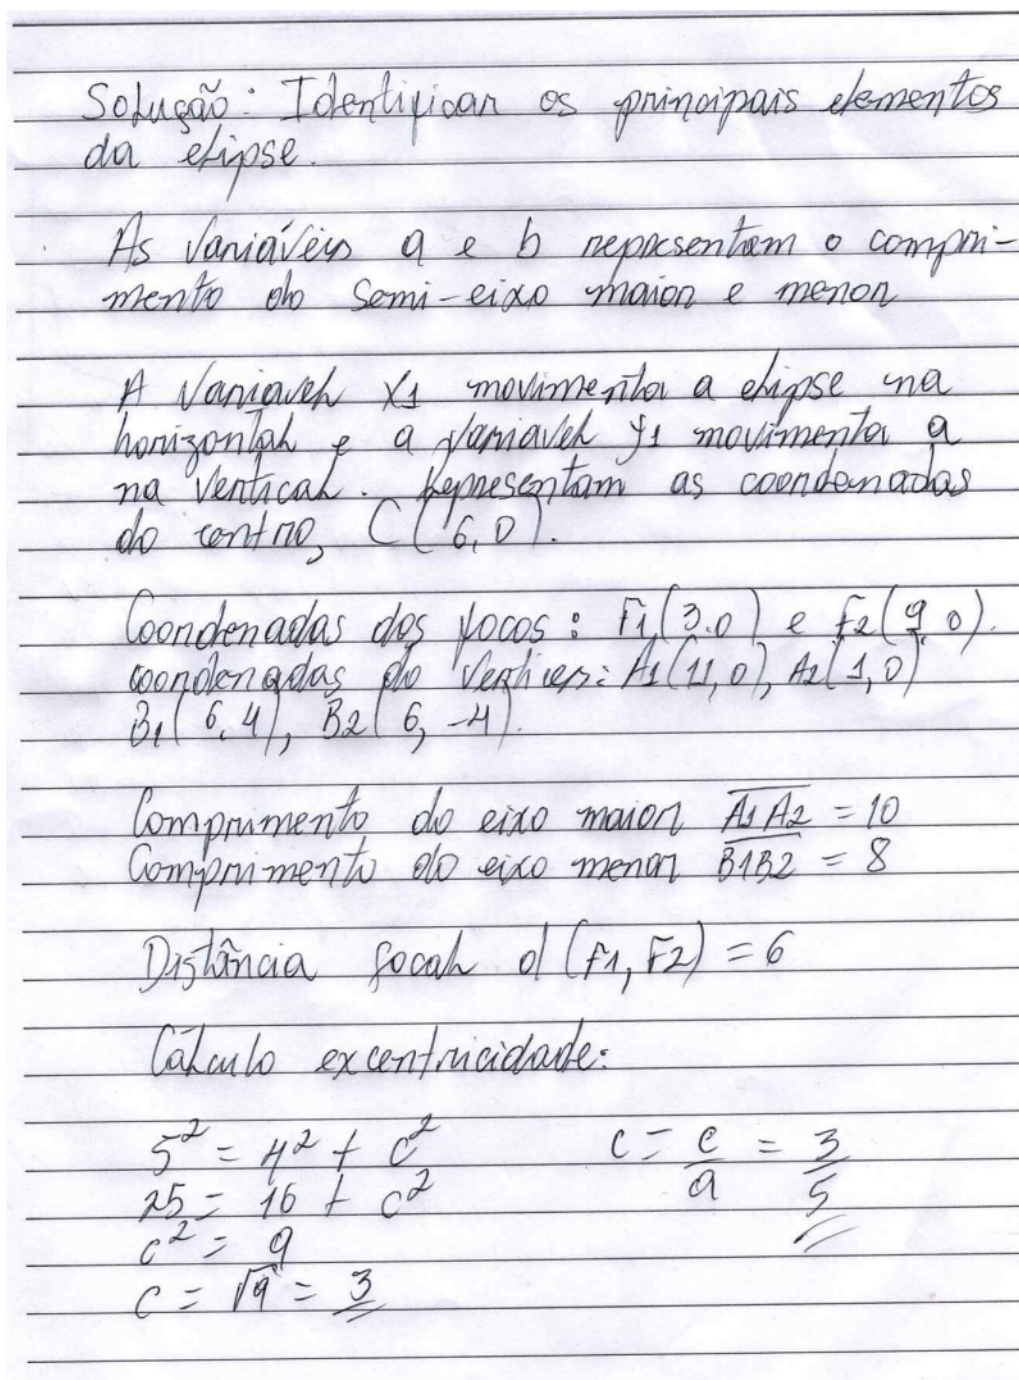 Solução: Identificar os principais elementos
da elipse.
As variáveis a e b representam o compri-
mento do semi-eixo maior e menor
A variavel X1 movimenta a elipse na
horizontal e a variavel y1 movimenta a
na vertical. Representam as coordenadas
do centro, C(6,0).
Coordenadas dos focos: F1(3.0) e F2(9,0).
coordenadas do vertices: A1(11,0), A2(1,0)
B1(6,4), B2(6,-4).
Comprimento do eixo maior A1A2 = 10
Comprimento do eixo menor B1B2 = 8
Distância focal d(F1,F2) = 6
Cálculo excentricidade:
5² = 4² + c² c = e/a = 3/5
25 = 16 + c²
c² = 9
c = √9 = 3